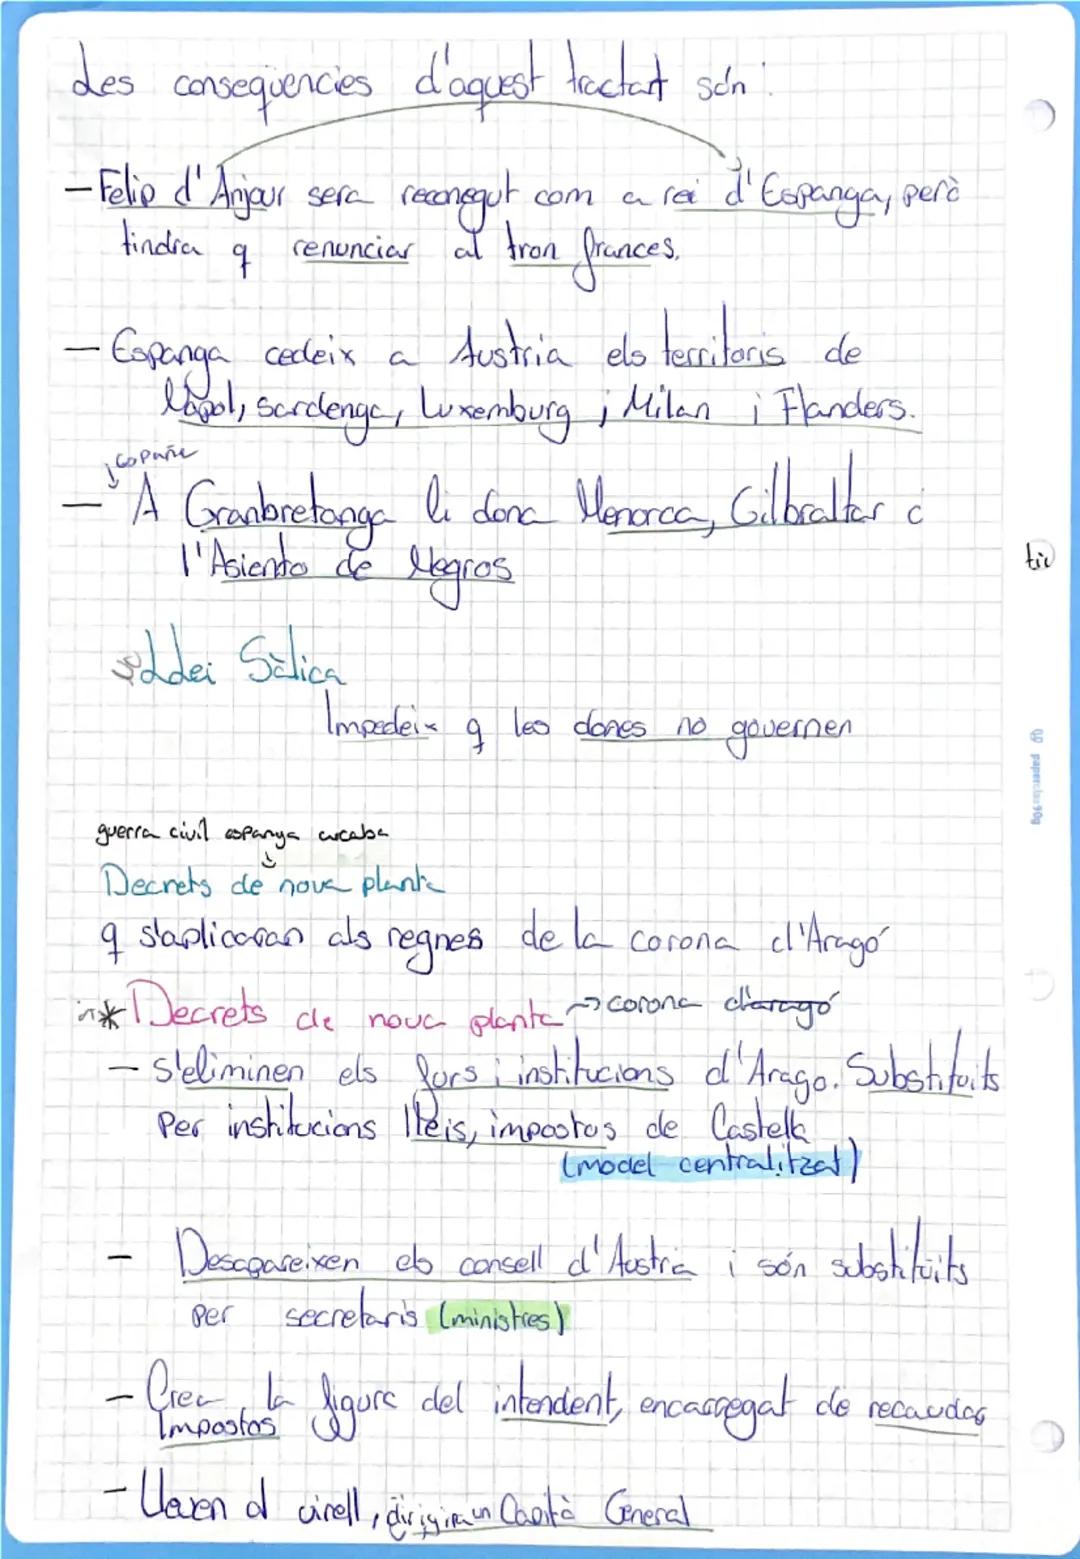 Les conseqüencies d'aquest tractat són:
- Felip d'Anjour sera reconegut com a rei d'Espanga, però
tindra q renunciar al tron frances.
- Espanga cedeix a Austria els territoris de
Nàpol, sardenga, Luxemburg i Milan i Flanders.
españe
- A Granbretanga li dona Menorca, Gilbraltar i
l'Asiento de Negros
tiv
Llei Sàlica
Impedeix q les dones no governen
paperclas 90g
guerra civil espanya acaba
Decrets de nova planta
q s'aplicaran als regnes de la corona d'Aragó
* Decrets de nova planta → corona d'aragó
- s'eliminen els furs i institucions d'Arago. Substituits
Per institucions lleis, impostos de Castella
(model centralitzat)
- Desapareixen els consell d'Austria i són substituïts
per secretaris (ministres)
- Crea la figura del intendent, encarregat de recaudar
Impostos
- Lleven el virell, dirigira un Capità General